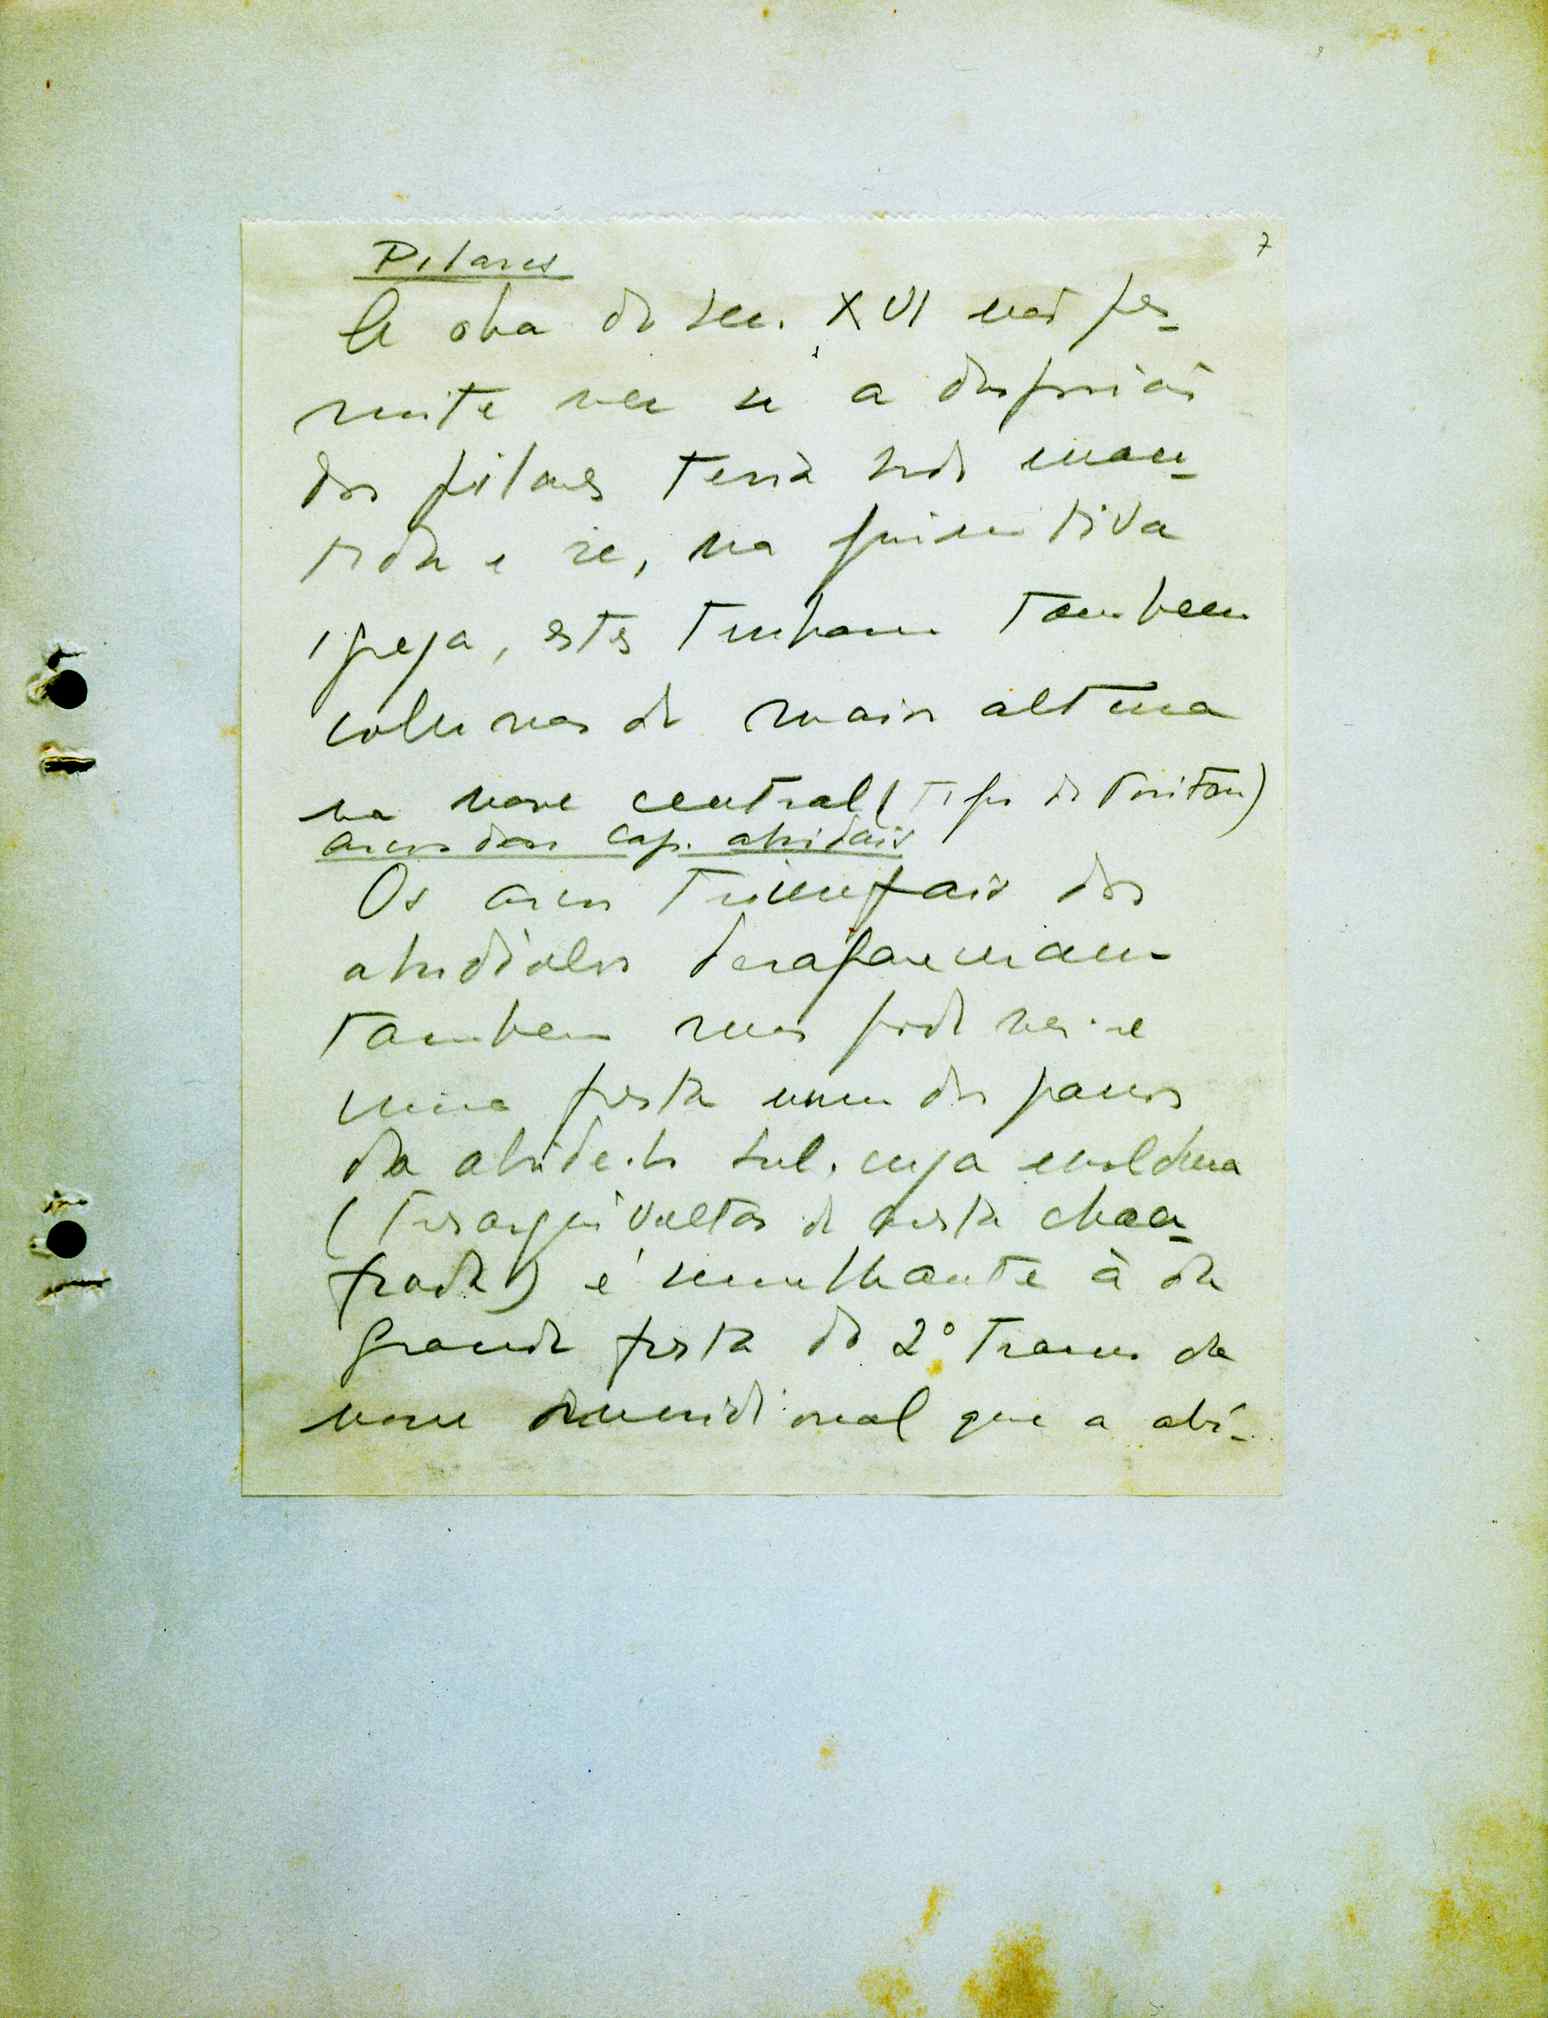 7
Pilares
A obra do sec. XVI não per-
mite ver se a disposição
dos pilares teria sido man-
tida e se, na primitiva
igreja, estes tinham tambem
colunas de maior altura
na nave central (tipo de
arcos das cap. absidais
Os arcos triunfais dos
absidiolos desapareceram
tambem mas pode ver-se
uma fresta num dos panos
da abside do sul, cuja moldura
(tres arquivoltas de aresta chan-
frada) é semelhante à da
grande fresta do 2º tramo da
nave meridional que a abi-